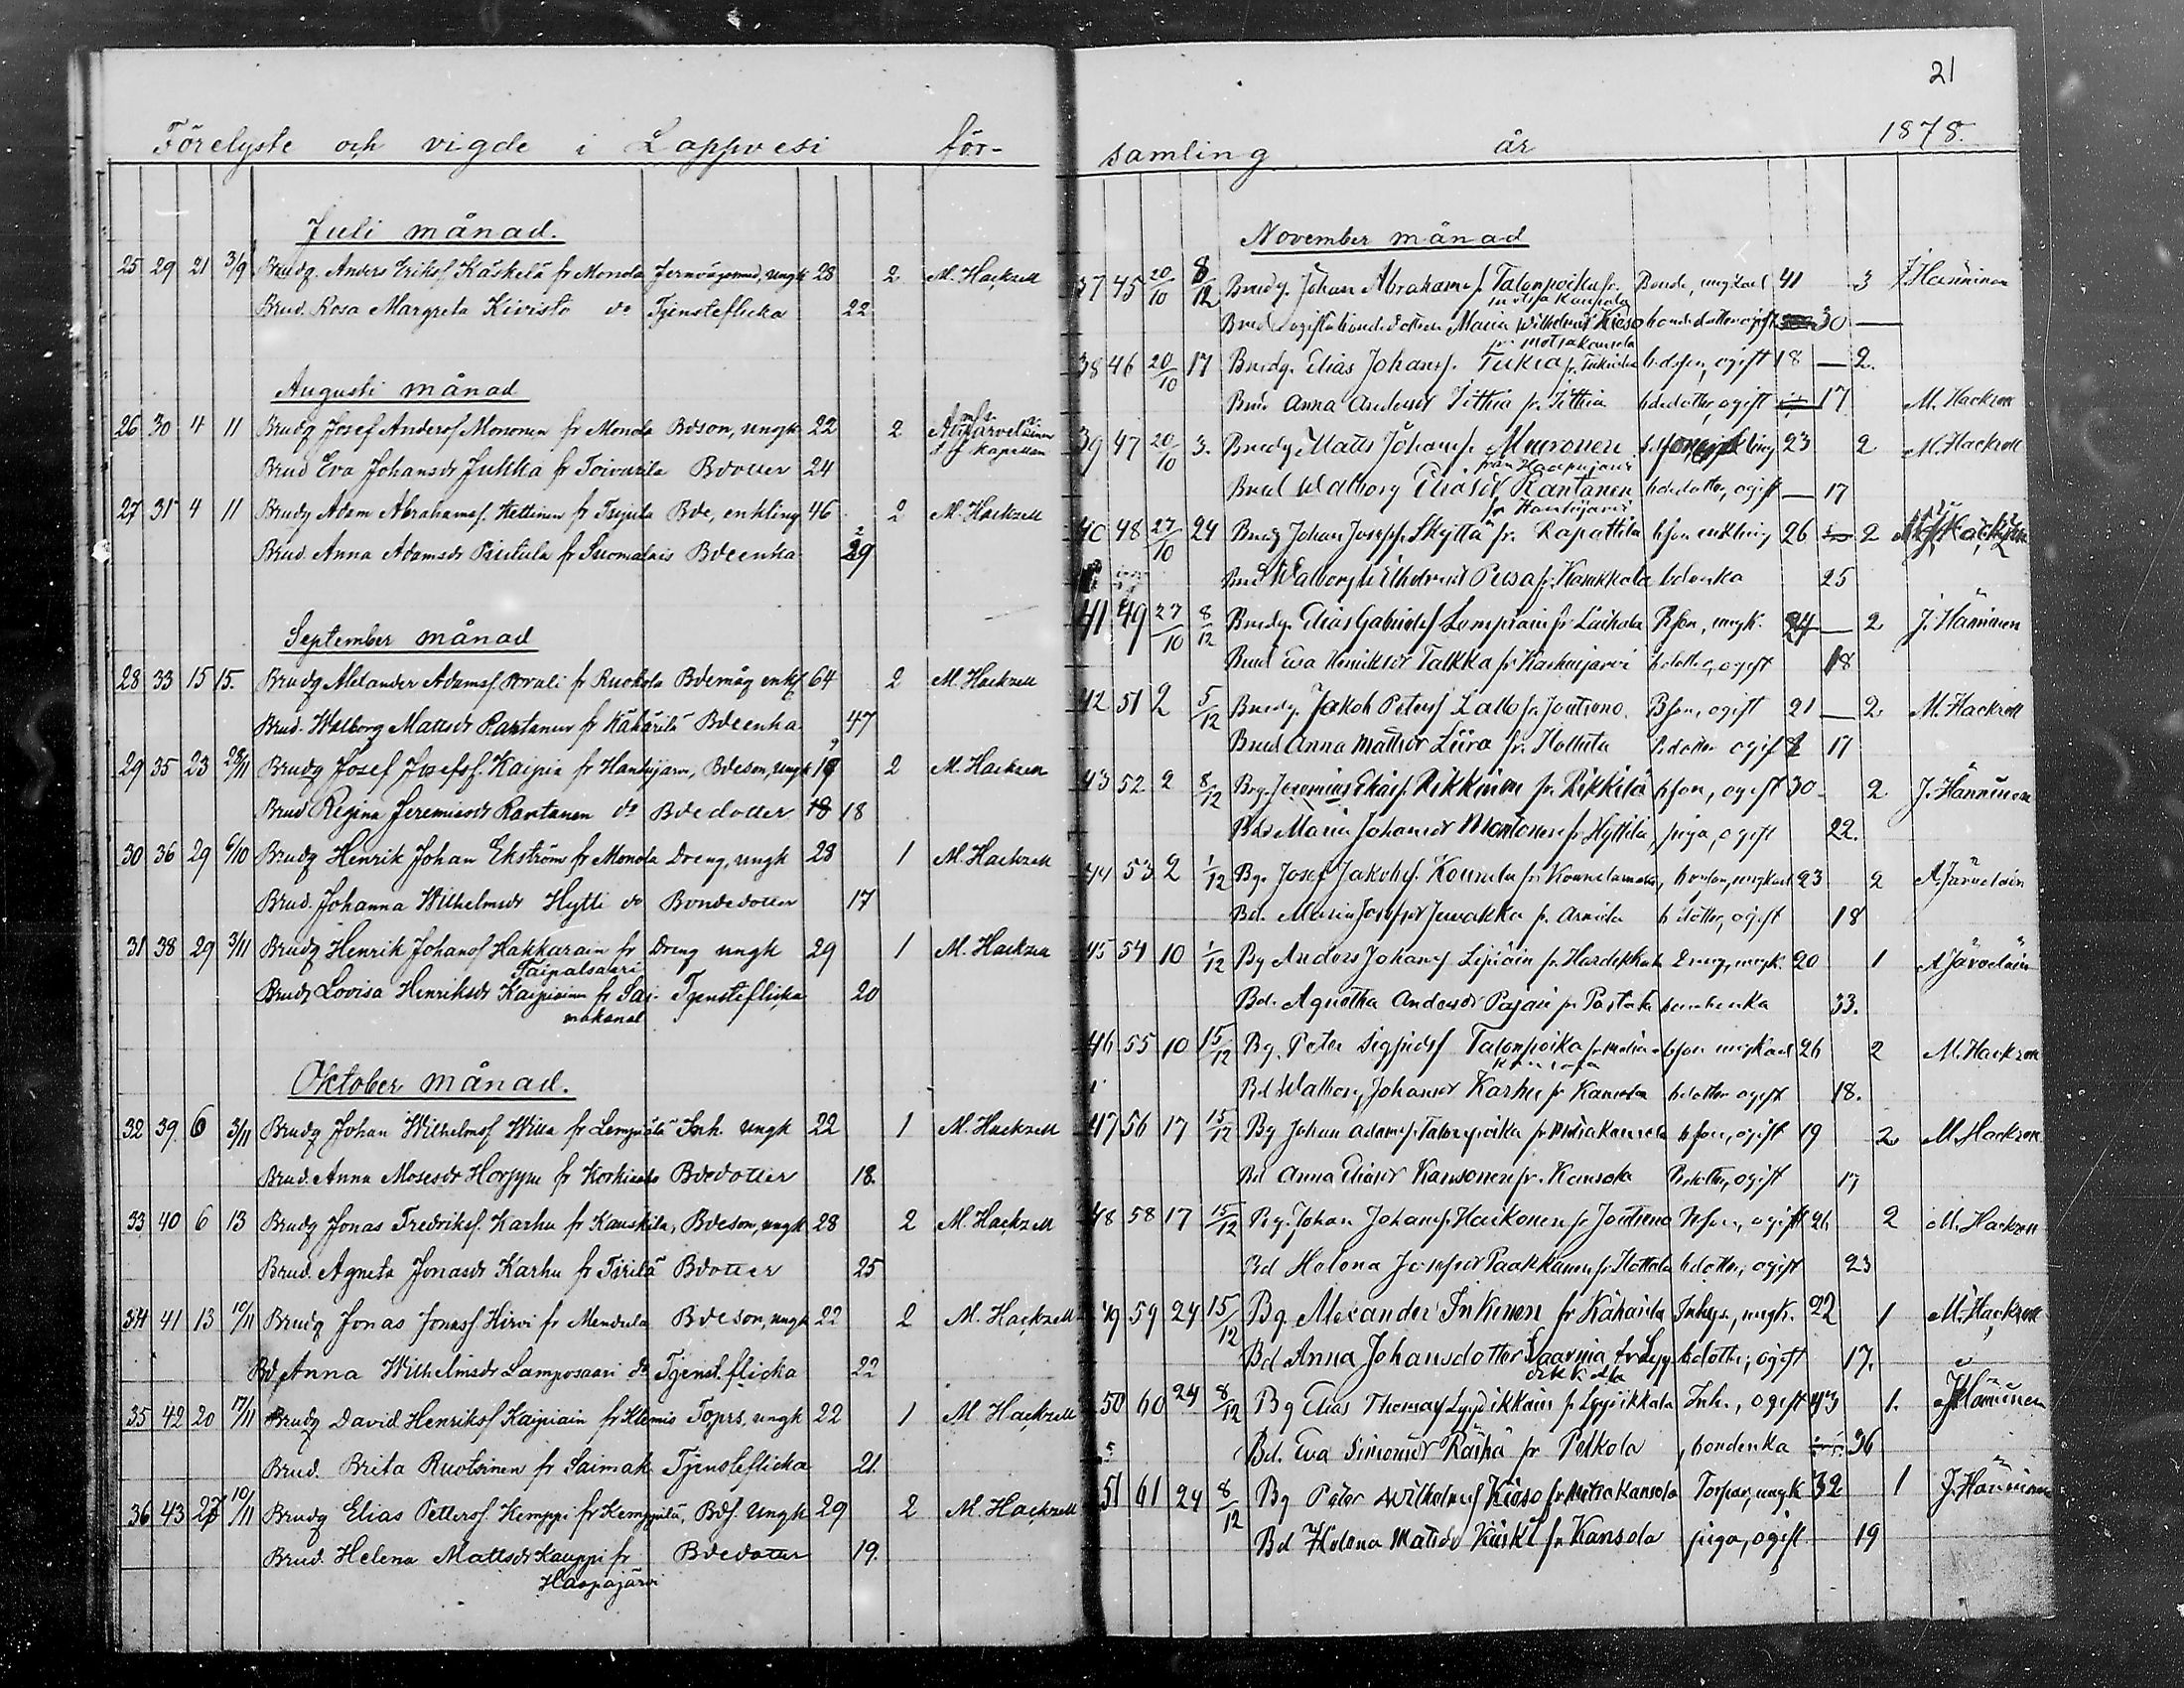 Förelyste och vigde i Lappvesi för-
Juli månad.
25 29 21 3/9 Brudg. Anders Erikss Käskelä fr Monola Jernvägsmed, ungk 28 2 M. Hackzell
Brud. Rosa Margreta Kivistö do Tjensteflicka 22
Augusti månad
26 30 4 11 Brudg Josef Anderss Mononen fr Monola Bdson, ungk 22 2
kapellan
Brud Eva Johansdr Jukka fr Toivarila Bdotter 24
27 31 4 11 Brudg Adam Abrahamss. Hettinen fr Bde, enkling 46 2 M. Hackzell
Brud. Anna Adamsdr fr Suomalais Bdeenka 29
September månad
28 33 15 15. Brudg Alexander Adamss. fr Ruohola Bdemåg enkl 64 2 M. Hackzell
Brud. Walborg Mattsdr Rantanen fr Kähärilä Bdeenka 47
29 35 23 23/11 Brudg Josef Josefss. Kaipia fr Hanhijärvi, Bdeson, ungk 19 2 M. Hackzell
Brud Regina Jeremiasdr Rantanen do Bdedotter 18 18
30 36 29 6/10 Brudg Henrik Johan Ekström fr Monola Dreng, ungk 28 1 M. Hackzell
Brud. Johanna Wilhelmsdr Hytti do Bondedotter 17
31 38 29 3/11 Brudg Henrik Johanss Hakkarain fr Dreng ungk 29 1 M. Hackzell
Taipalsaari
Brud Lovisa Henriksdr Kaipiainen fr Sai- Tjensteflicka 20
makanal
Oktober månad.
32 39 6 3/11 Brudg Johan Wilhelmss Willa fr Lempiälä Inh. ungk 22 1 M. Hackzell
Brud. Anna Mosesdr fr Bdedotter 18.
33 40 6 13 Brudg Jonas Fredrikss. Karhu fr Kauskila, Bdeson, ungk 28 2 M. Hackzell
Brud. Agneta Jonasdr Karhu fr Tirilä Bdotter 25
34 41 13 10/11 Brudg Jonas Jonass Hirvi fr Mendula Bdeson, ungk 22 2 M. Hackzell
Bd Anna Wilhelmsdr Lamposaari do Tjenst.flicka 22
35 42 20 17/11 Brudg David Henrikss Kaipiain fr Klemis Torprs, ungk 22 1 M. Hackzell
Brud. Brita Ruotsinen fr Saimak Tjensteflicka 21.
36 43 27 10/11 Brudg Elias Petterss. Kemppi fr Kemppilä, Bds. ungk 29 2 M. Hackzell
Brud. Helena Mattsdr Kauppi fr Bdedotter 19.
Haapajärvi
21
samling år 1878.
November månad
37 45 20/10 8/12 Brudg. Johan Abrahams. Talonpoika fr. Bonde, ungkarl 41 3 J. Hänninen
motsa Kansola
Brud Maria Wilhelmsdr Kiiso bondedotter ogift 30
fr Motsakansola
38 46 20/10 17 Brudg. Elias Johanss. Tukia fr. Tukiala bdeson, ogift 18 — 2.
Brud Anna Andersdr Ihttia fr. Ihttia bdedotter, ogift 17 M. Hackzell
39 47 20/10 3. Brudg Matts Johanss. Muuronen 23 2 M. Hackzell
från Haapajärvi
Brud Walborg Eliasdr Rantanen bdedotter, ogift — 17
fr Hanhijärvi
40 48 27/10 24 Brudg Johan Josephs. Skyttä fr. Rapattila bson enkling 26 2
Brud Walborg Wilhelmsdr Pusa fr. Karkkola bdenka 25
41 49 27/10 8/12 Brudg. Elias Gabriels Lampiain fr Laihola Bson, ungk. 24 — 2 J. Hänninen
Brud Eva Henriksdr Talkka fr Karhusjärvi bdotter, ogift 18
42 51 2 5/12 Brudg. Jakob Peters Lallo fr. Joutseno. Bson, ogift 21 — 2. M. Hackzell
Brud Anna Mattsdr Liira fr. bdotter ogift 17
43 52 2 8/12 Brg. Jeremias Eliass. Rikkinen fr. Rikkilä bson, ogift 30 2. J. Hänninen
Bd Maria Johansdr Montonen fr Hyttilä, piga, ogift 22.
44 53 2 1/12 Bg. Josef Jakobs. Kounela fr ungkarl 23 2 A. Järveläin
Bd. Maria Josefsdr Juvakka fr. Arvila bdotter, ogift 18
45 54 10 1/12 Bg Anders Johans Lipiäin fr. Dreng, ungk. 20 1 A. Järveläin
Bd. Agnetha Andersdr Pajari fr 33.
46 55 10 15/12 Bg. Peter Sigfrids Talonpoika fr Motsa- bson ungkarl 26 2 M. Hackzell
kansola
Bd Walborg Johansdr Karhu fr Kansola bdotter ogift 18.
47 56 17 15/12 Bg Johan Adams. Talonpoika fr Motsakansola bson, ogift 19 2 M. Hackzell
Bd Anna Eliasdr Kansonen fr. Kansola bdotter, ogift 17
48 58 17 15/12 Bg. Johan Johans. Haikonen fr Joutseno bson, ogift 21 2 M. Hackzell
Bd Helena Josefsdr Paakkunen fr. bdotter, ogift 23
49 59 24 15/12 Bg. Alexander Inkinen fr Kähärilä Inhys., ungk. 22 1 M. Hackzell
Bd Anna Johansdotter Saarnia fr Lyy- bdotter, ogift 17.
dikkälä
50 60 24 8/12 Bg Elias Thomas Lyydikkäin fr Lyydikkälä Inh., ogift 43 1. J. Hänninen
Bd. Eva Simonsdr Räihä fr Pelkola, bondenka 36
51 61 24 8/12 Bg Peter Wilhelms Kiiso fr Motsakansola Torpar, ungk 32 1 J. Hänninen
Bd Helena Matsdr Kiiski fr Kansola piga, ogift 19